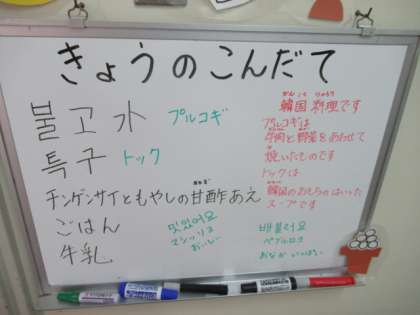 きょうのこんだて
불고가 プルコギ
특구 トック
チンゲンサイともやしの甘酢あえ
あまず
ごはん
牛乳
かんこくりょうり
韓国料理です
プルコギは
牛肉と野菜をあわせて
焼いたものです
トックは
韓国のおもちのはいった
スープです
맛있어요
マシッソヨ
おいしい
배불러요
ペブルロヨ
おなかいっぱい